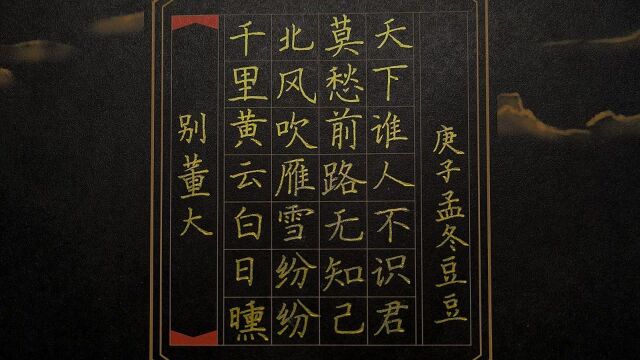 别董大
千里黄云白日曛
北风吹雁雪纷纷
莫愁前路无知己
天下谁人不识君
庚子孟冬豆豆